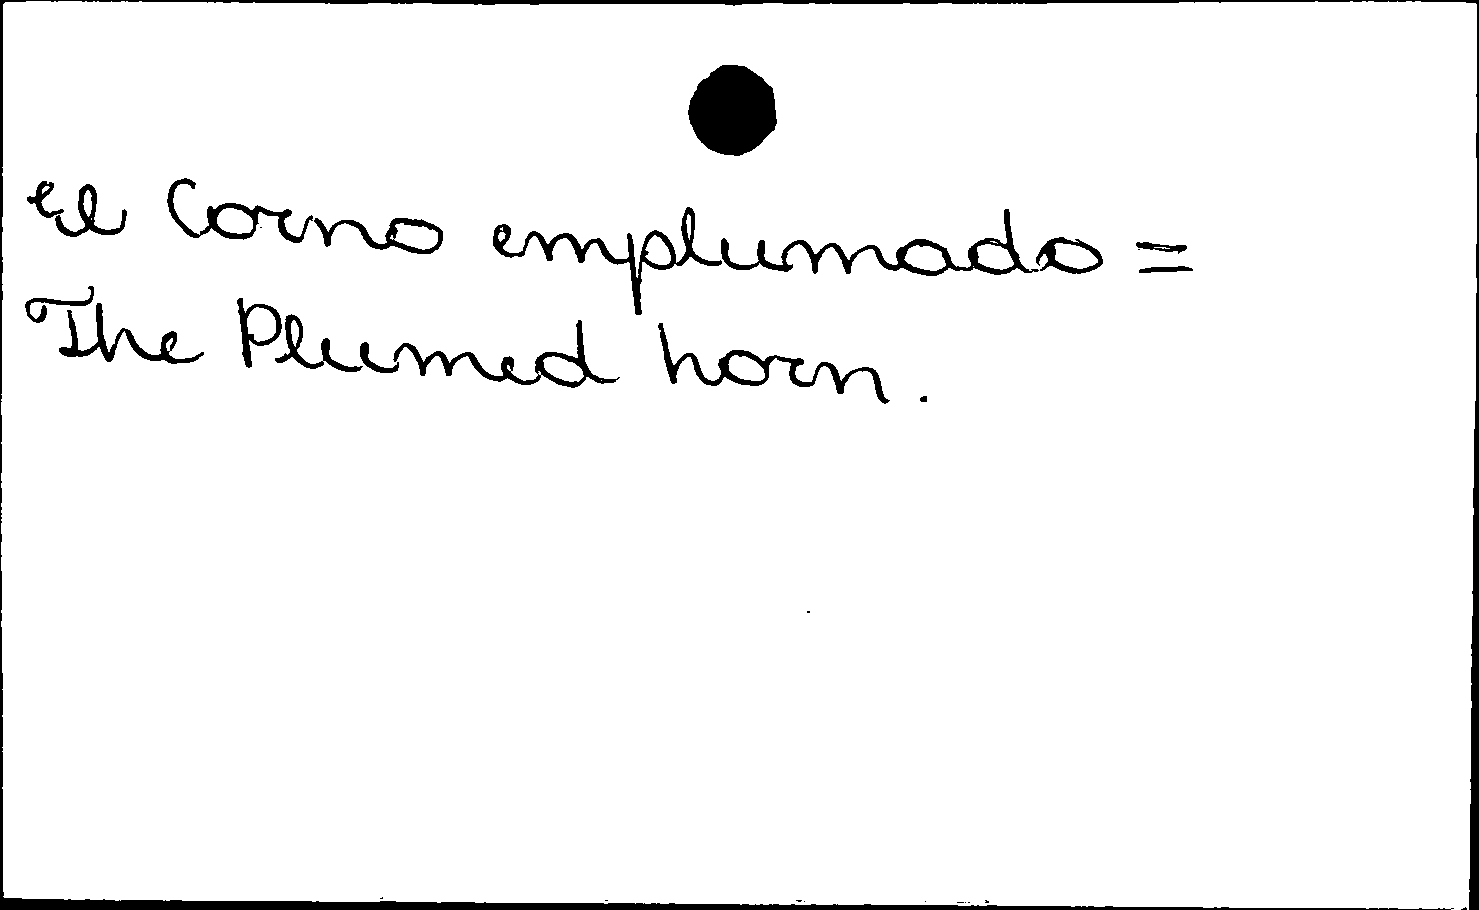 El Corno emplumado =
The Plumed horn.